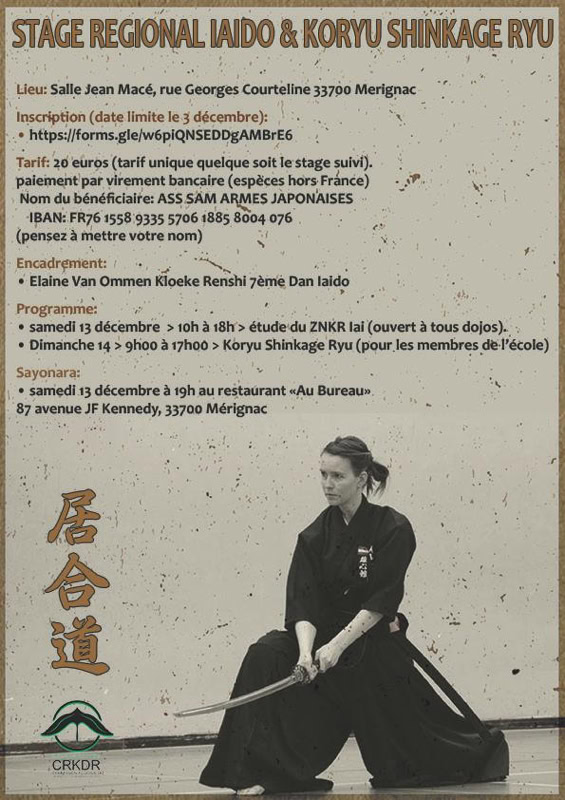 STAGE REGIONAL IAIDO & KORYU SHINKAGE RYU
Lieu: Salle Jean Macé, rue Georges Courteline 33700 Merignac
Inscription (date limite le 3 décembre):
• https://forms.gle/w6piQNSEDDgAMBrE6
Tarif: 20 euros (tarif unique quelque soit le stage suivi).
paiement par virement bancaire (espèces hors France)
Nom du bénéficiaire: ASS SAM ARMES JAPONAISES
IBAN: FR76 1558 9335 5706 1885 8004 076
(pensez à mettre votre nom)
Encadrement:
• Elaine Van Ommen Kloeke Renshi 7ème Dan Iaido
Programme:
• samedi 13 décembre > 10h à 18h > étude du ZNKR Iai (ouvert à tous dojos).
• Dimanche 14 > 9h00 à 17h00 > Koryu Shinkage Ryu (pour les membres de l'école)
Sayonara:
• samedi 13 décembre à 19h au restaurant «Au Bureau»
87 avenue JF Kennedy, 33700 Mérignac
居合道
CRKDR